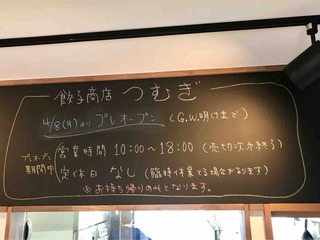 餃子商店 つむぎ
4/8(月)より プレオープン (G.W.明けまで)
プレオープン期間中
営業時間 10:00〜18:00 (売り切れ次第終了)
定休日 なし (臨時休業する場合があります)
※お持ち帰りのみとなります。